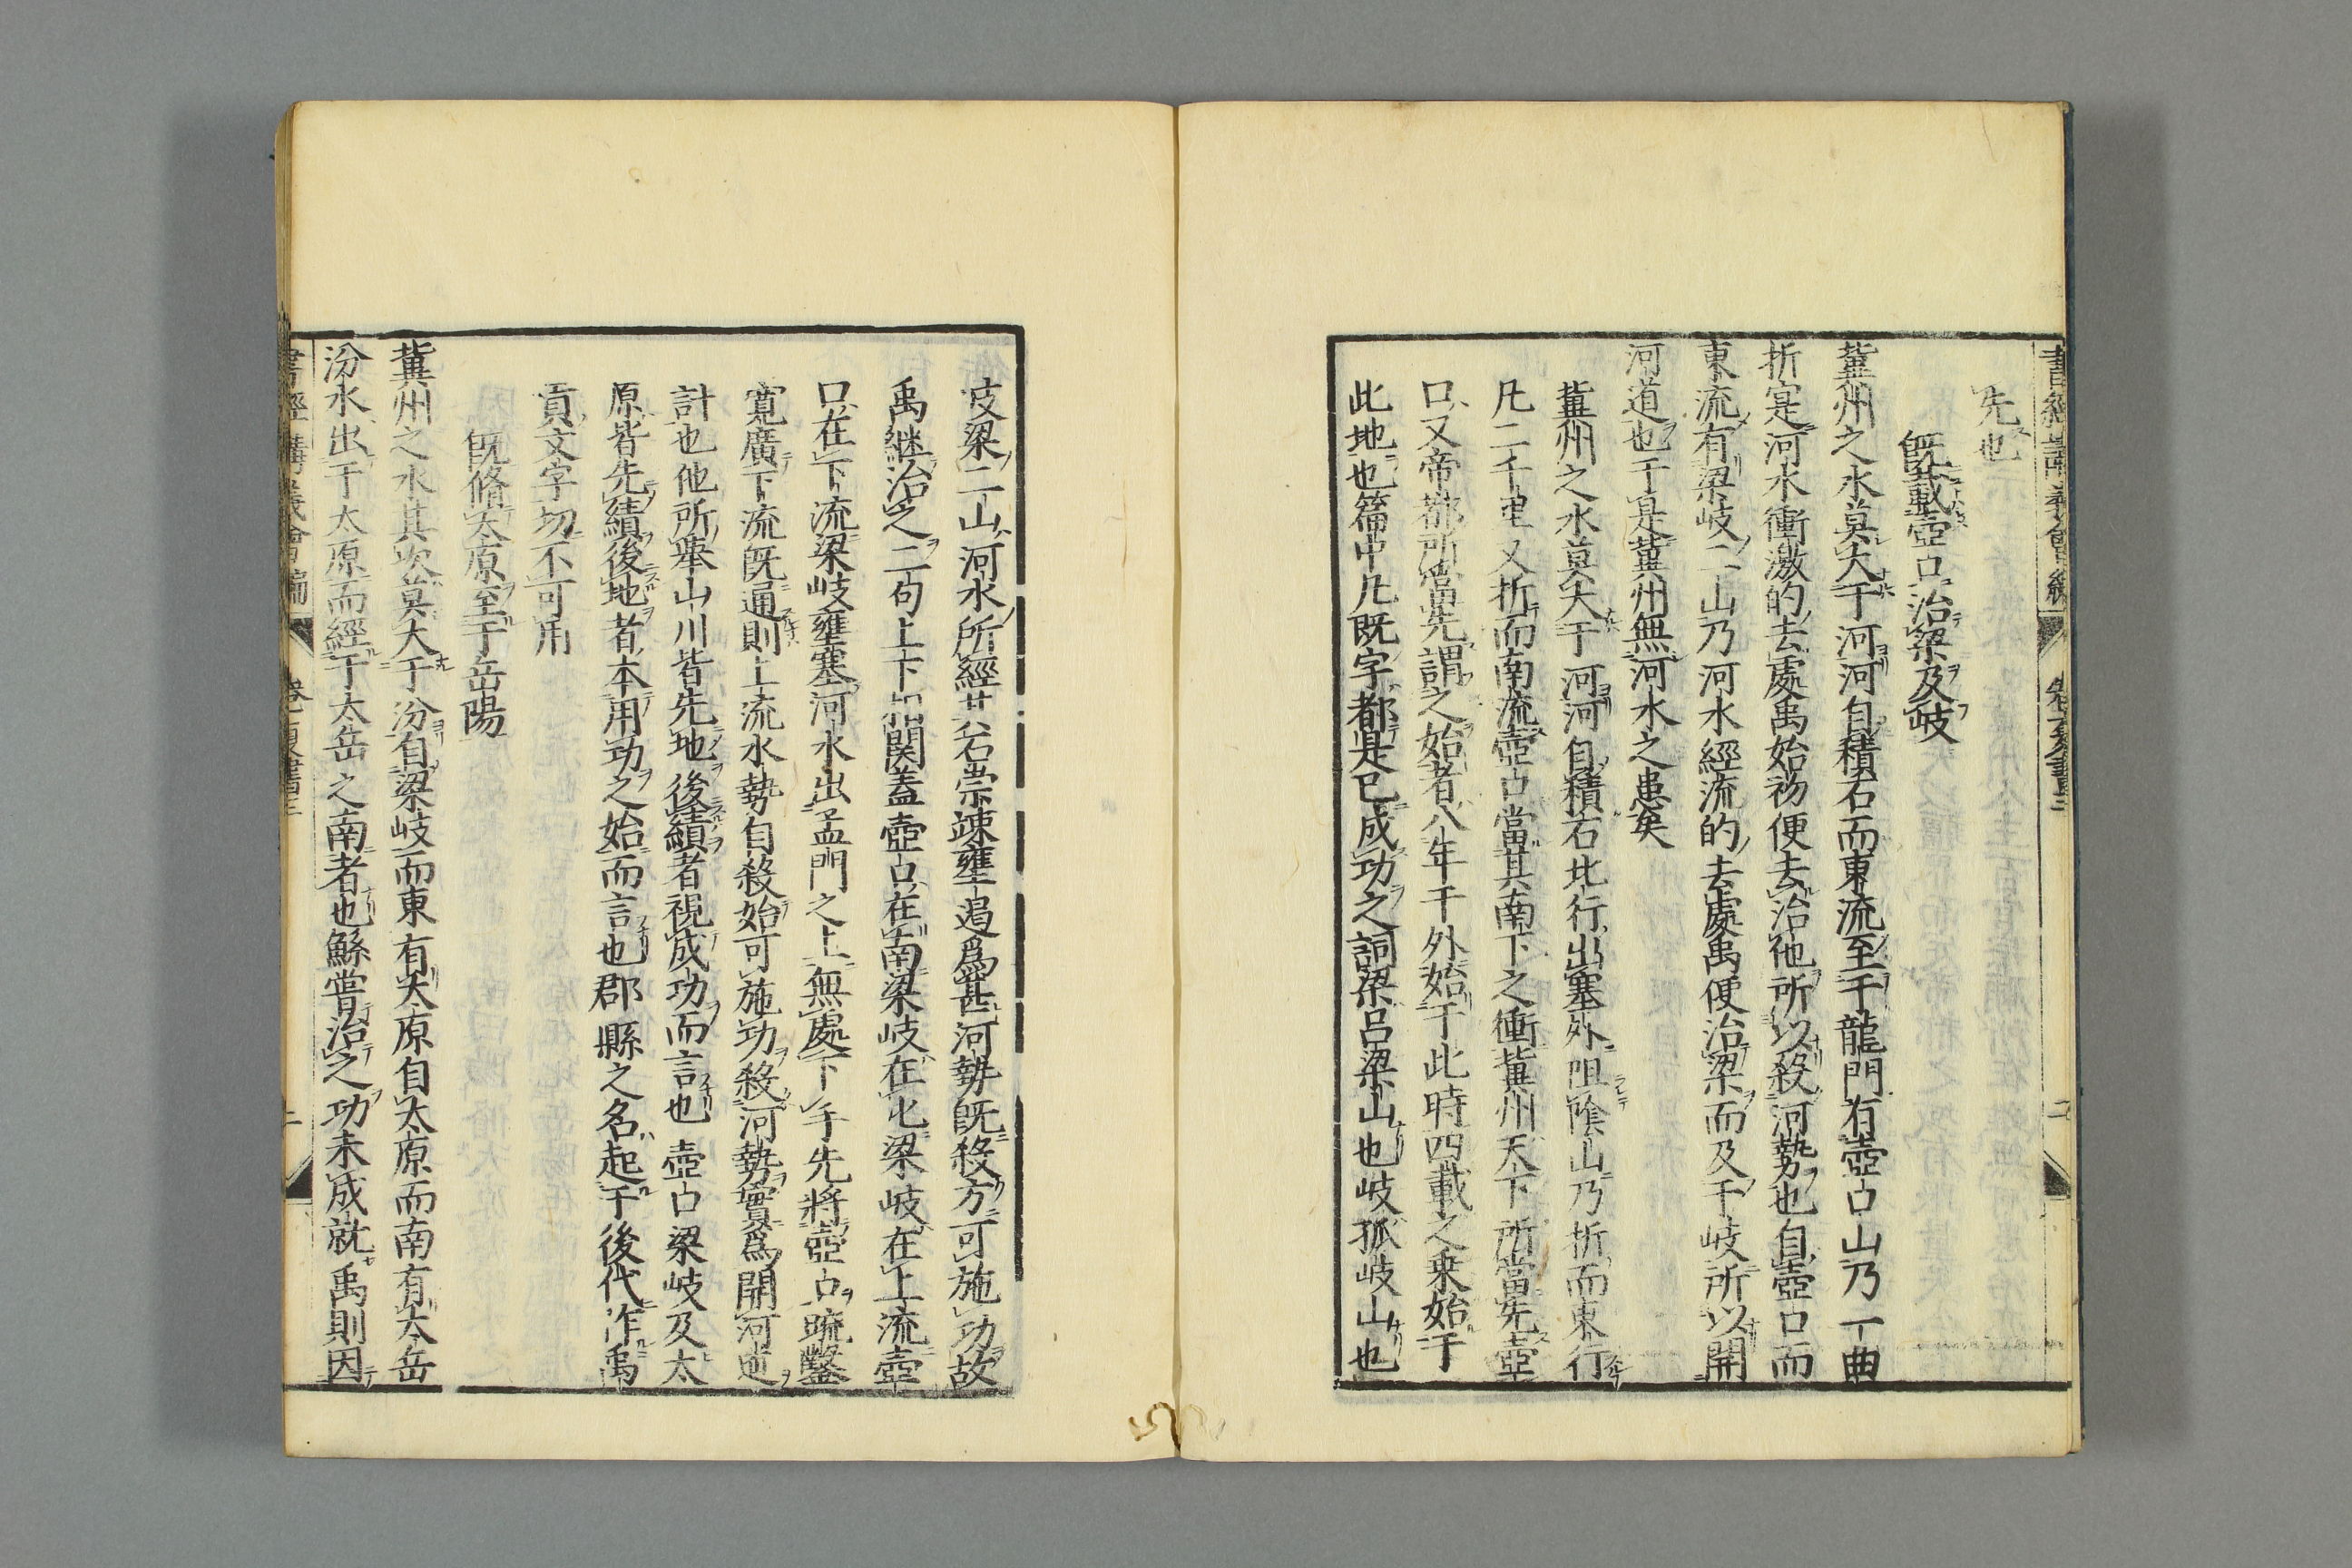 書經講義會編
先也
既載壺口治梁及岐
冀州之水莫大于河河自積石而東流至于龍門有壺口山乃一曲
折寔河水衝激的去處禹始初便去治他所以殺河勢也自壺口而
東流有梁岐二山乃河水經流的去處禹便治梁而及于岐所以開
河道也于是冀州無河水之患矣
冀州之水莫大于河河自積石北行出塞外阻陰山乃折而東行
凡二千里又折而南流壺口當其南下之衝冀州天下所當先壺
口又帝都所當先謂之始者八年于外始于此時四載之乗始于
此地也篇中凡既字都是已成功之詞梁呂梁山也岐狐岐山也
岐梁二山河水所經其石崇竦壅遏爲甚河勢既殺方可施功故
禹継治之二句上下相関蓋壺口在南梁岐在北梁岐在上流壺
口在下流梁岐壅塞河水出孟門之上無處下手先將壺口疏鑿
寛廣下流既通則上流水勢自殺始可施功殺河勢實爲開河道
計也他所舉山川皆先地後績者視成功而言也壺口梁岐及太
原皆先績後地者本用功之始而言也郡縣之名起于後代作禹
貢文字切不可用
既脩太原至于岳陽
冀州之水其次莫大于汾自梁岐而東有太原自太原而南有太岳
汾水出于太原而經于太岳之南者也鯀嘗治之功未成就禹則因
書經講義會編
卷二夏書三
二